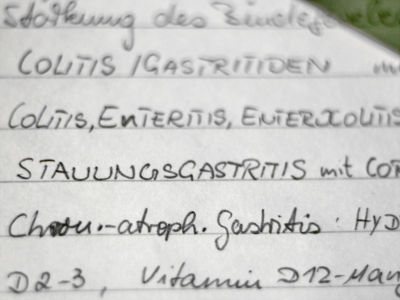 Stärkung des Bindegewebes
COLITIS / GASTRITIDEN
COLITIS, ENTERITIS, ENTEROCOLITIS
STAUUNGSGASTRITIS mit
Chron.-atroph. Gastritis · HYD
D2-3, Vitamin D12-Mang